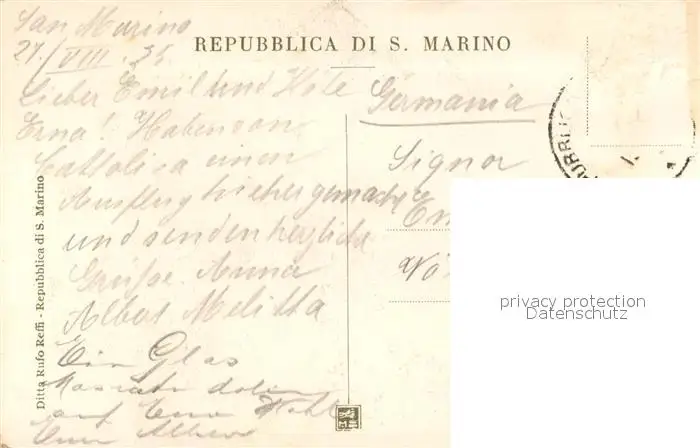 San Marino
27./VIII. 35.
REPUBBLICA DI S. MARINO
Lieber Emil und
Erna! Haben von
Cattolica einen
Ausflug hieher gemacht
und senden herzliche
Grüße. Anna
Albert Melitta
Ein Glas
auf Euer Wohl
Euer Albert
Germania
Signor
Ditta Rufo Reffi - Repubblica di S. Marino
privacy protection
Datenschutz